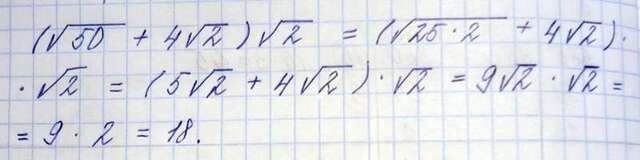 (√50 + 4√2)√2 = (√25·2 + 4√2)·
·√2 = (5√2 + 4√2)·√2 = 9√2·√2 =
= 9·2 = 18.